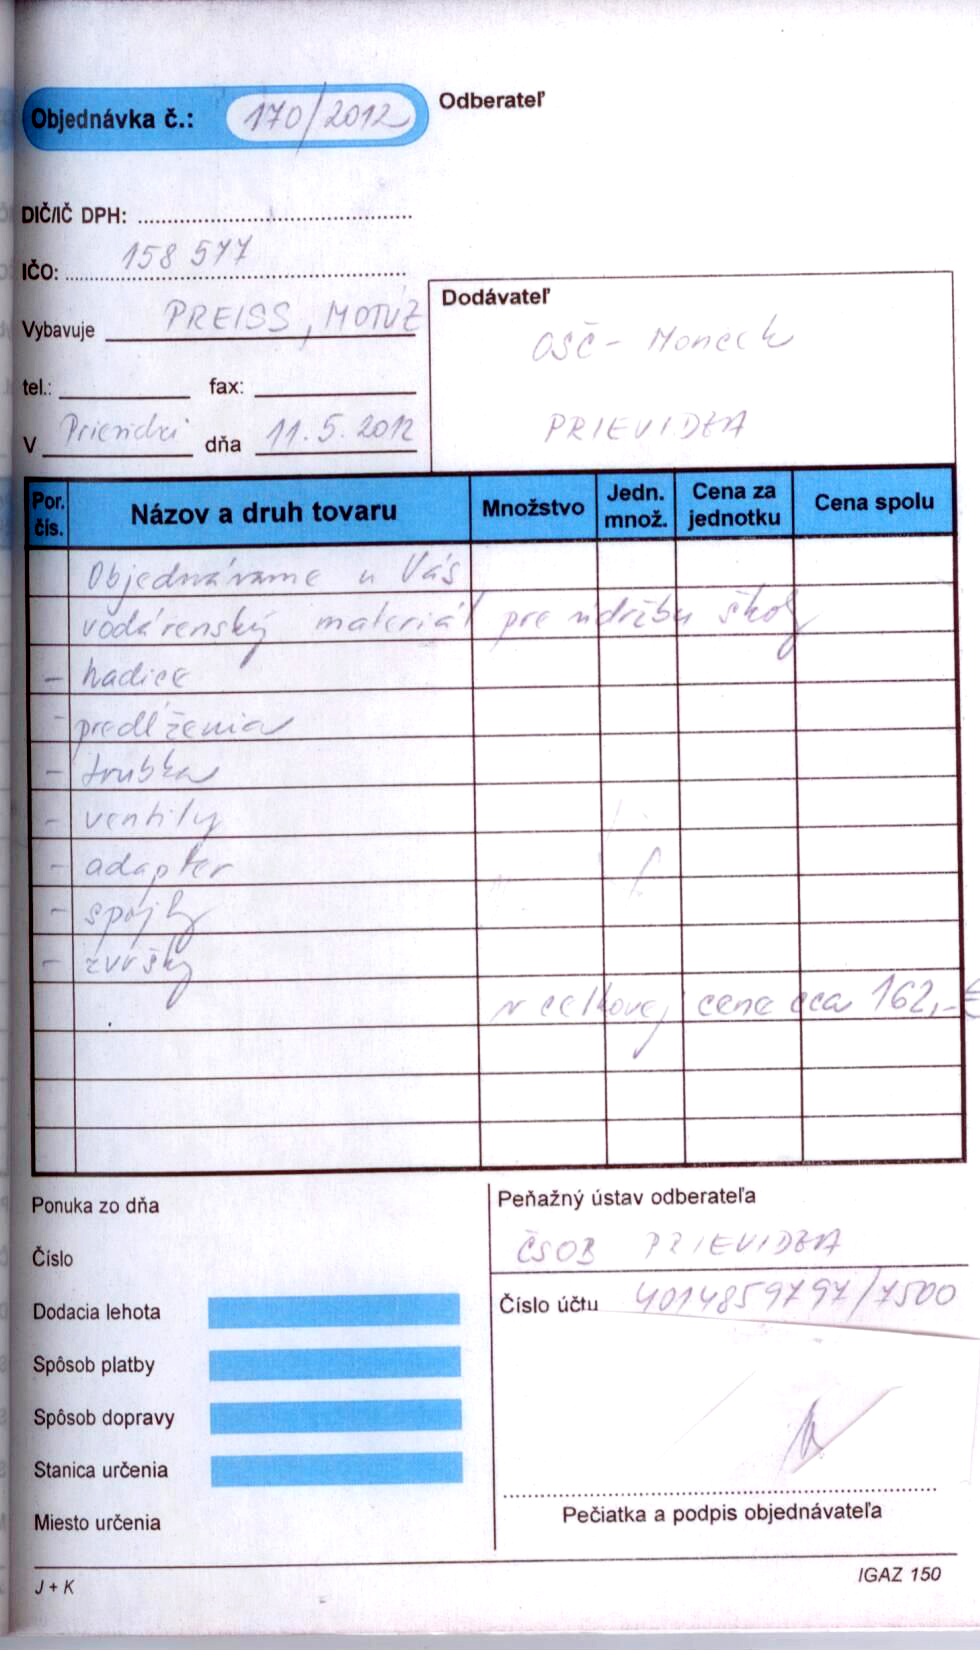 Objednávka č.: 170/2012
Odberateľ
DIČ/IČ DPH:
IČO: 158 577
Vybavuje PREISS, MOTÚZ
tel.: fax:
V Prievidzi dňa 11.5.2012
Dodávateľ
OSČ - Moneck
PRIEVIDZA
Por. čís. Názov a druh tovaru Množstvo Jedn. množ. Cena za jednotku Cena spolu
Objednávame u Vás
vodárenský materiál pre údržbu školy
- hadice
- predlženia
- trubka
- ventily
- adapter
- spojky
- zvršky
v celkovej cene cca 162,-€
Ponuka zo dňa
Číslo
Dodacia lehota
Spôsob platby
Spôsob dopravy
Stanica určenia
Miesto určenia
Peňažný ústav odberateľa
ČSOB PRIEVIDZA
Číslo účtu 4014859797/7500
Pečiatka a podpis objednávateľa
J + K
IGAZ 150